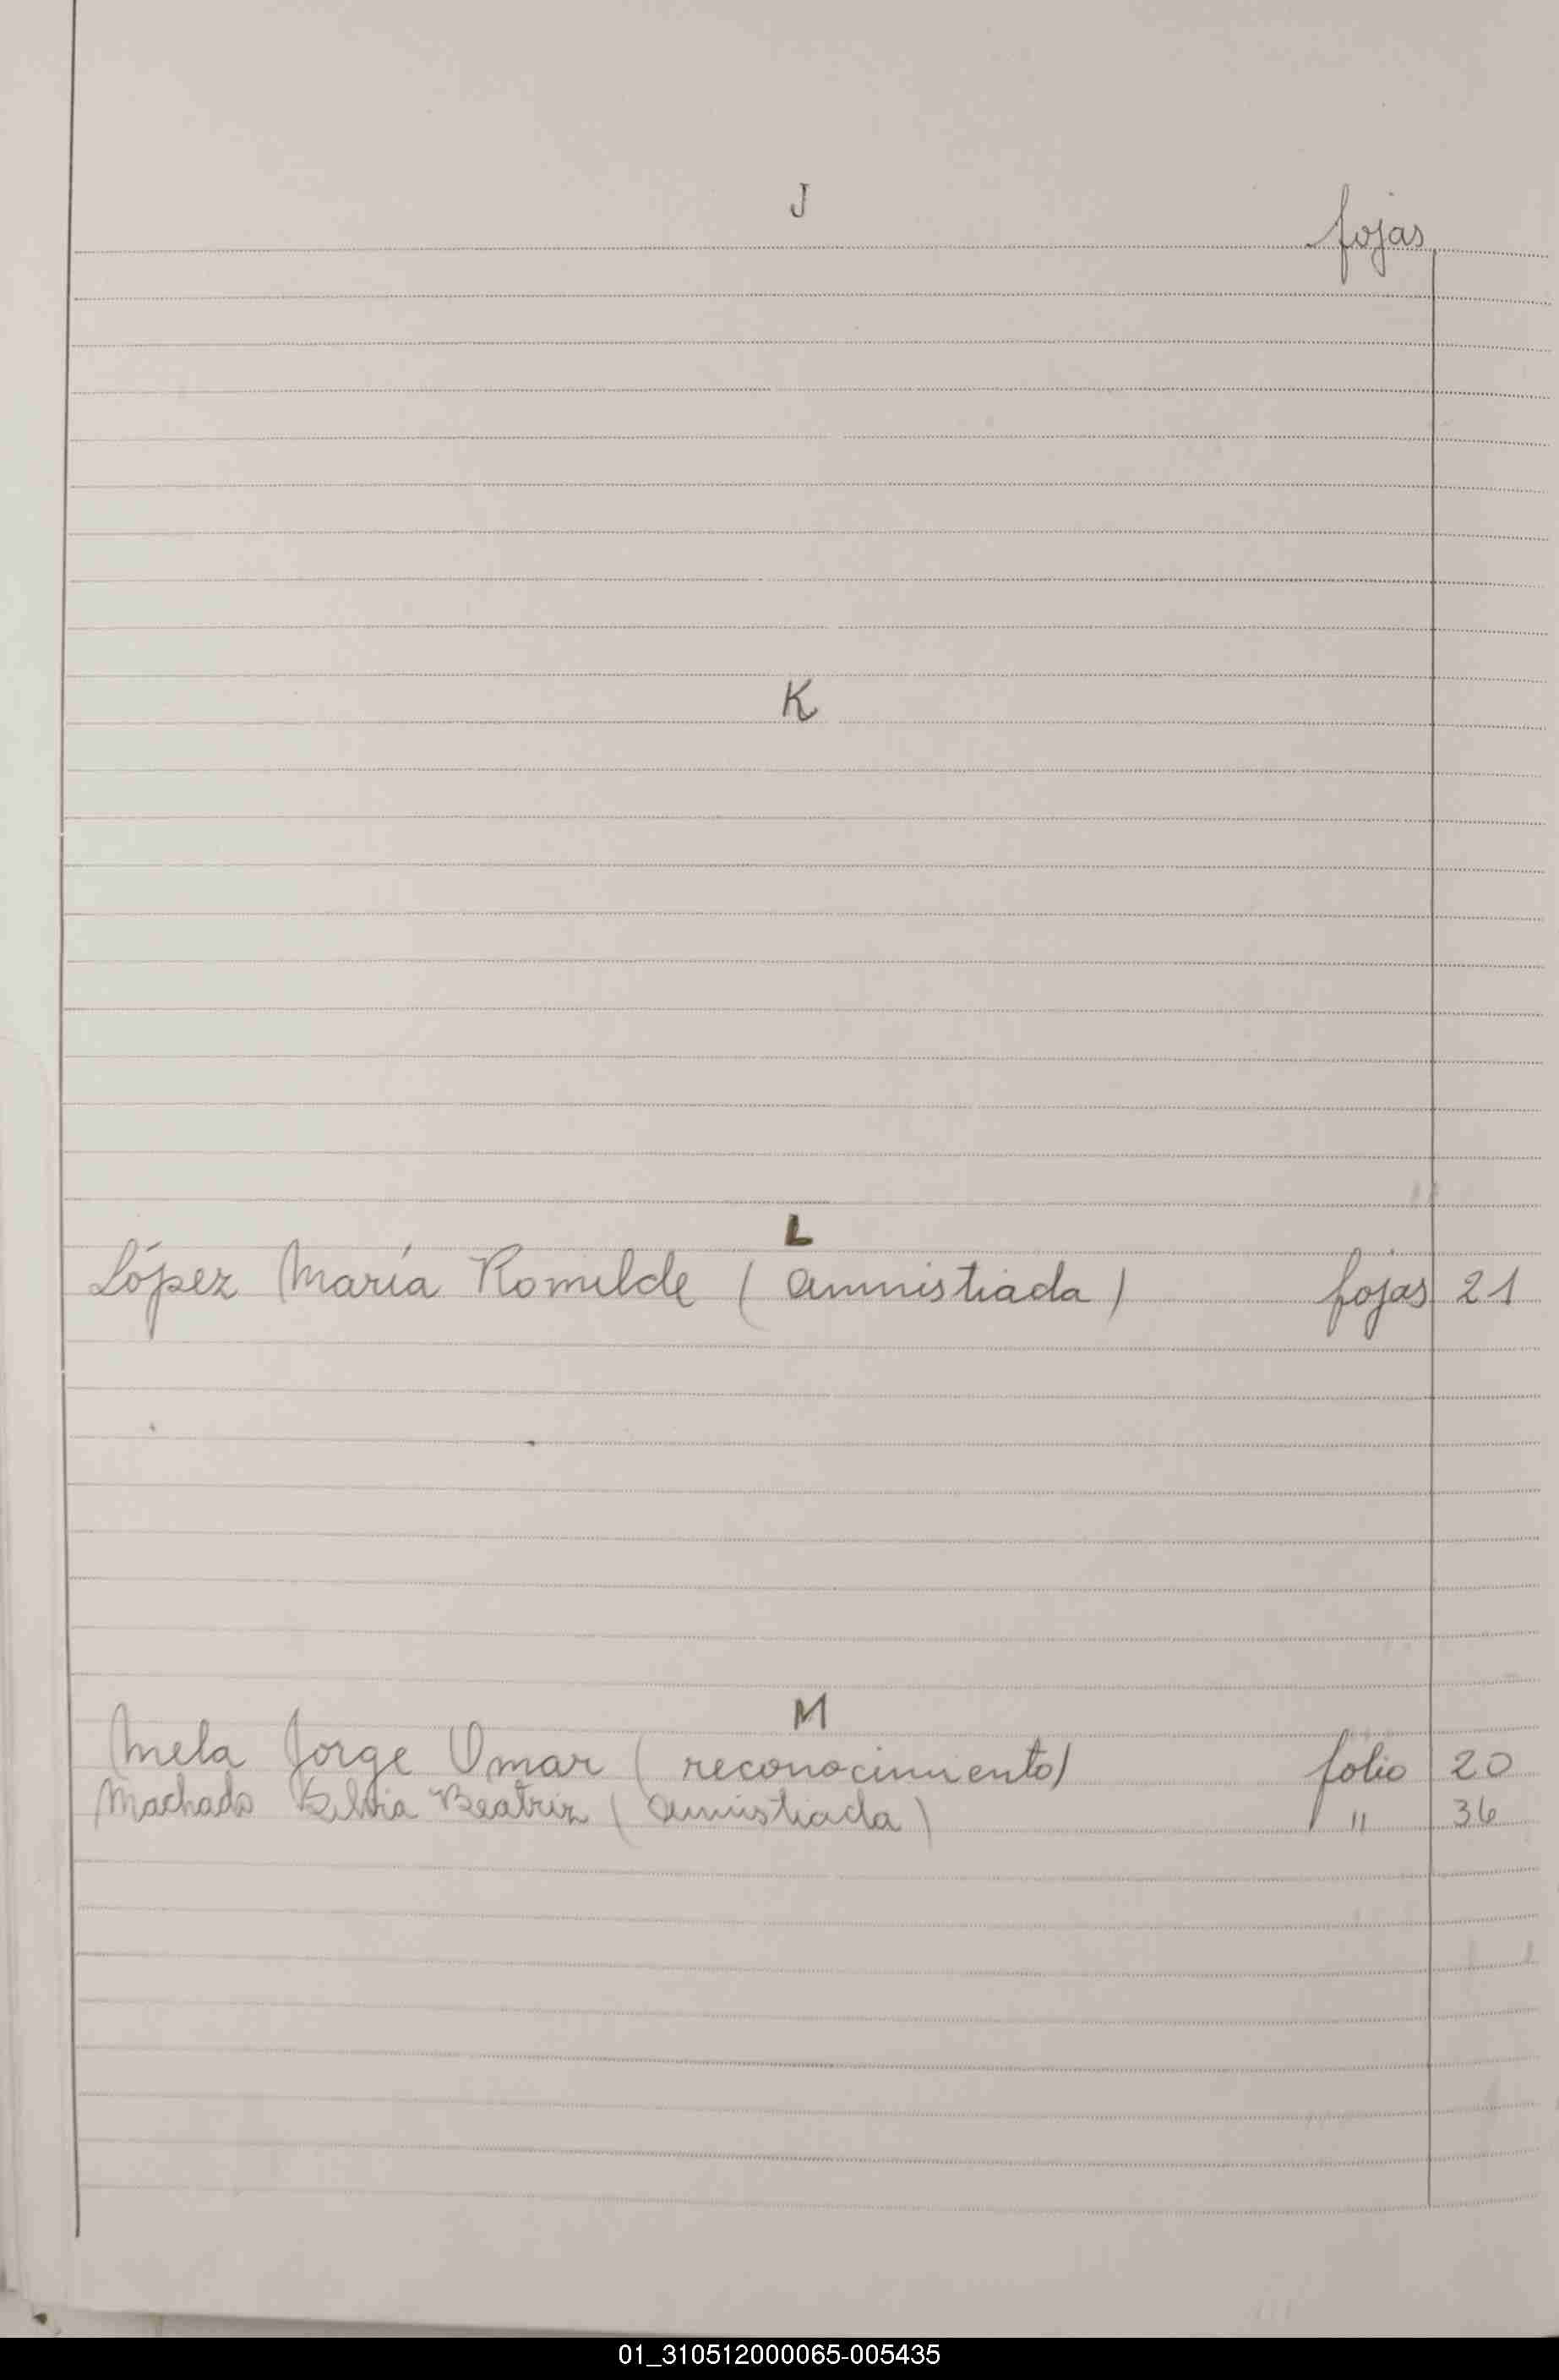 J
fojas
K
L
López María Romilde (amnistiada) fojas 21
M
Mela Jorge Omar (reconocimiento) folio 20
Machado Silvia Beatriz (amistiada) " 36
01_310512000065-005435